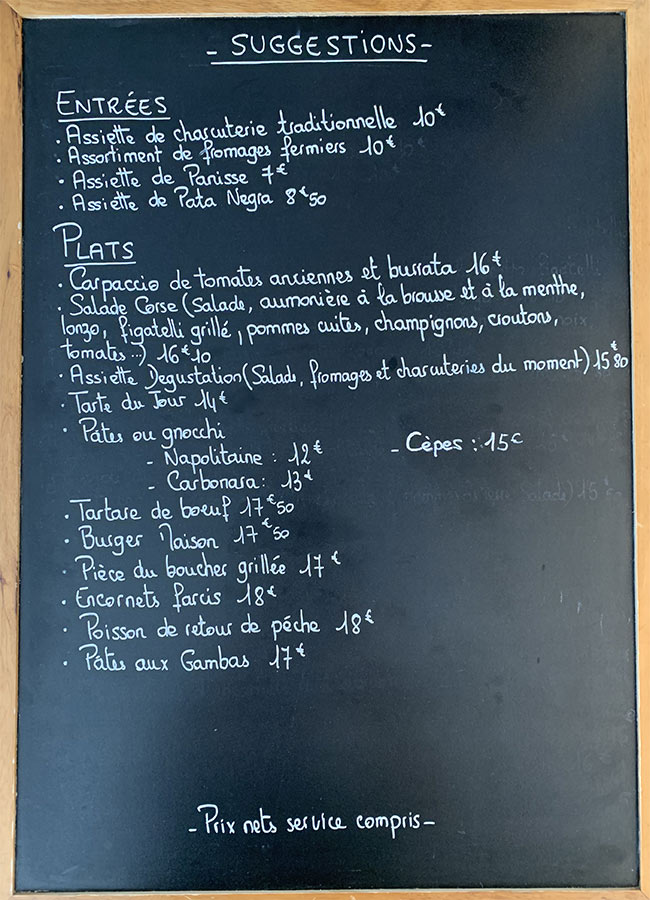 - SUGGESTIONS -
ENTRÉES
. Assiette de charcuterie traditionnelle 10€
. Assortiment de fromages fermiers 10€
. Assiette de Panisse 7€
. Assiette de Pata Negra 8€50
PLATS
. Carpaccio de tomates anciennes et burrata 16€
. Salade Corse (Salade, aumonière à la brousse et à la menthe,
lonzo, figatelli grillé, pommes cuites, champignons, croutons,
tomates...) 16€10
. Assiette Degustation (Salade, fromages et charcuteries du moment) 15€80
. Tarte du Jour 14€
. Pâtes ou gnocchi
- Napolitaine : 12€ - Cèpes : 15€
- Carbonara : 13€
. Tartare de boeuf 17€50
. Burger Maison 17€50
. Pièce du boucher grillée 17€
. Encornets farcis 18€
. Poisson de retour de pêche 18€
. Pâtes aux Gambas 17€
- Prix nets service compris -